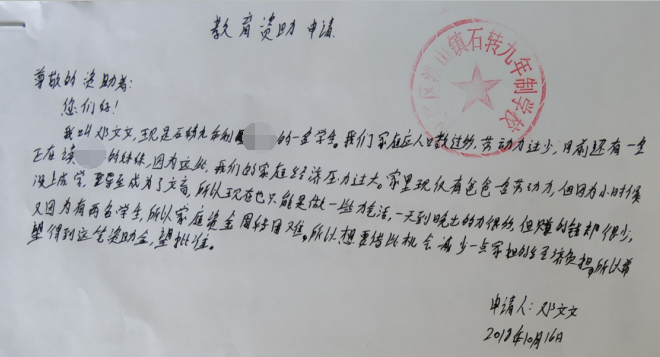 教育资助申请
镇石转九年制学校
尊敬的资助者:
您们好!
我叫邓文文,现是石转九年制 的一名学生。我们家庭人口数过多,劳动力过少,目前还有一名
正在读 的妹妹,因为这些,我们的家庭经济压力过大。家里现仅有爸爸一名劳动力,但因为小时候
没上成学,甚至成为了文盲,所以现在也只能是做一些力气活,一天到晚出的力很多,但赚的钱却很少,
又因为有两名学生,所以家庭资金周转困难。所以想要借此机会减少一点家担的经济负担。所以希
望得到这笔资助金,望批准。
申请人:邓文文
2018年10月16日